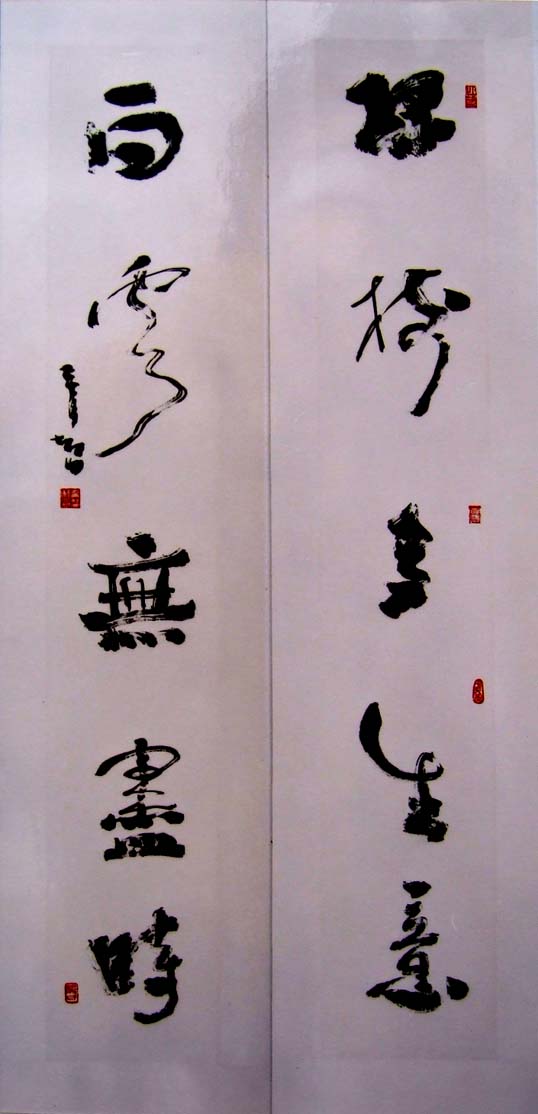 綠樹多生意
白雲無盡時